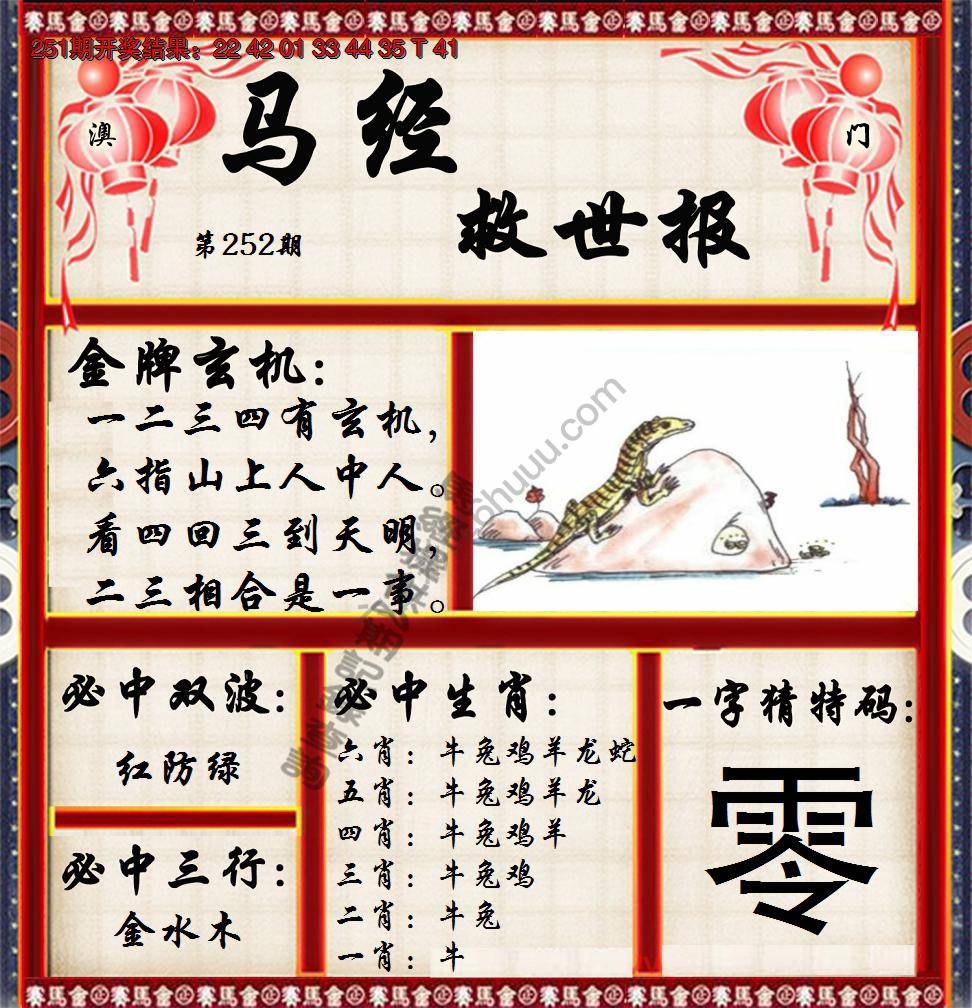 251期开奖结果：22 42 01 33 44 35 T 41
澳
门
马经
救世报
第252期
金牌玄机：
一二三四有玄机，
六指山上人中人。
看四回三到天明，
二三相合是一事。
必中双波：
红防绿
必中三行：
金水木
必中生肖：
六肖：牛兔鸡羊龙蛇
五肖：牛兔鸡羊龙
四肖：牛兔鸡羊
三肖：牛兔鸡
二肖：牛兔
一肖：牛
一字猜特码：
零